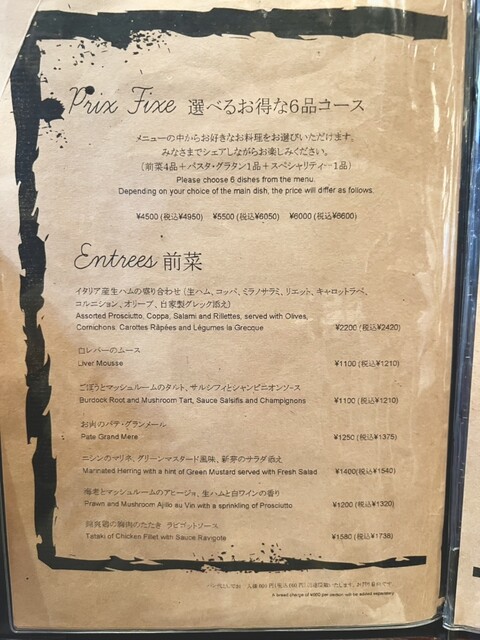 Prix Fixe 選べるお得な6品コース
メニューの中からお好きなお料理をお選びいただけます。
みなさまでシェアしながらお楽しみください。
(前菜4品＋パスタ・グラタン1品＋スペシャリティー1品)
Please choose 6 dishes from the menu.
Depending on your choice of the main dish, the price will differ as follows.
¥4500 (税込¥4950) ¥5500 (税込¥6050) ¥6000 (税込¥6600)
Entrees 前菜
イタリア産生ハムの盛り合わせ (生ハム、コッパ、ミラノサラミ、リエット、キャロットラペ、
コルニション、オリーブ、自家製グレック添え)
Assorted Prosciutto, Coppa, Salami and Rillettes, served with Olives,
Cornichons. Carottes Râpées and Légumes la Grecque ¥2200 (税込¥2420)
白レバーのムース
Liver Mousse ¥1100 (税込¥1210)
ごぼうとマッシュルームのタルト、サルシフィとシャンピニオンソース
Burdock Root and Mushroom Tart, Sauce Salsifis and Champignons ¥1100 (税込¥1210)
お肉のパテ・グランメール
Pate Grand Mere ¥1250 (税込¥1375)
ニシンのマリネ、グリーンマスタード風味、新芽のサラダ添え
Marinated Herring with a hint of Green Mustard served with Fresh Salad ¥1400(税込¥1540)
海老とマッシュルームのアヒージョ、生ハムと白ワインの香り
Prawn and Mushroom Ajillo au Vin with a sprinkling of Prosciutto ¥1200 (税込¥1320)
阿波鶏の胸肉のたたき ラビゴットソース
Tataki of Chicken Fillet with Sauce Ravigote ¥1580 (税込¥1738)
A bread charge of per person will be added separately.